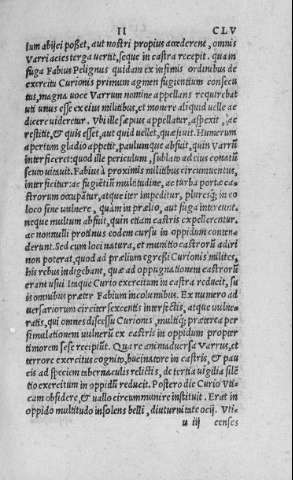 II CLV
lum abijci posset, aut nostri propius accederent, omnis
Varri acies terga uertit, seque in castra recepit. quam in
fuga Fabius Pelignus quidam ex infimis ordinibus de
exercitu Curionis primum agmen fugientium consecu
tus, magna uoce Varrum nomine appellans requirebat
uti unus esse ex eius militibus, et monere aliquid uelle ac
dicere uideretur. Vbi ille sæpius appellatus, aspexit, ac
restitit, & quis esset, aut quid uellet, quæsiuit. Humerum
apertum gladio appetit, paulumque abfuit, quin Varrū
interficeret: quod ille periculum, sublato ad eius conatū
scuto uitauit. Fabius à proximis militibus circunuentus,
interficitur: ac fugiētiū multitudine, ac turba portæ ca=
strorum occupātur, atque iter impeditur, pluresq; in eo
loco sine uulnere, quàm in prælio, aut fuga intereunt.
neque multum abfuit, quin etiam castris expellerentur,
ac nonnulli protinus eodem cursu in oppidum conten=
derunt. Sed cum loci natura, et munitio castrorū aditū
non poterat, quod ad prælium egressi Curionis milites,
his rebus indigebant, quæ ad oppugnationem castrorū
erant usui. itaque Curio exercitum in castra reducit, su
is omnibus præter Fabium incolumibus. Ex numero ad
uersariorum circiter sexcentis interfectis, atque uulne=
ratis, qui omnes discessu Curionis, multiq; præterea per
simulationem uulnerū ex castris in oppidum propter
timorem sese recipiūt. Qua re animaduersa Varrus, et
terrore exercitus cognito, bucinatore in castris, & pau
cis ad speciem tabernaculis relictis, de tertia uigilia silē
tio exercitum in oppidū reducit. Postero die Curio Vti=
cam obsidere, & uallo circummunire instituit. Erat in
oppido multitudo insolens belli, diuturnitate ocij. Vti=
u iij censes